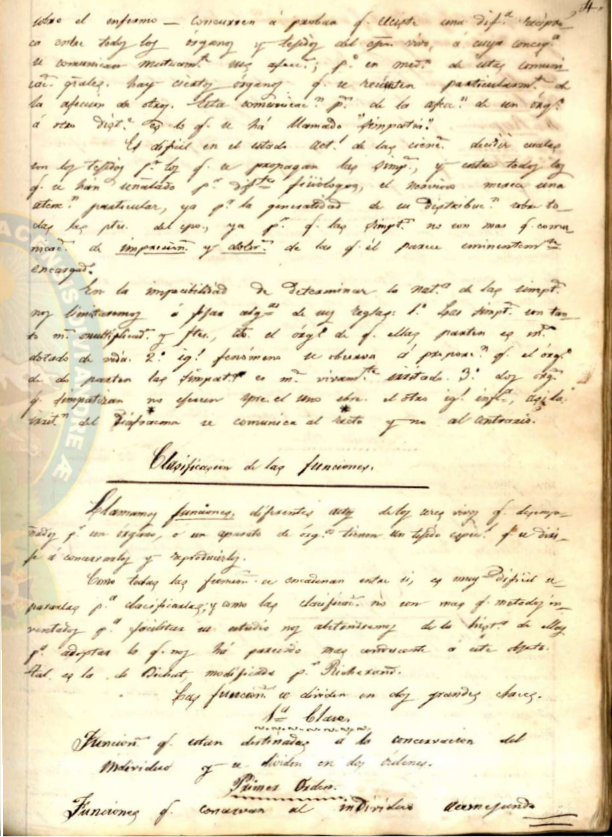 4
sobre el enfermo — concurren á probar q.e existe una dif.a recipro-
ca entre todos los órganos y tejidos del ser vivo, á cuya
se comunican mutuam.te sus afecc.s; p.o en med.o de estas comuni-
cac.s grales. hay ciertos órganos q.e se recienten particularm.te de
la afeccion de otros. Esta comunicac.n p.r de la afecc.n de un órg.o
á otro dist.te es lo q.e se há llamado "simpatia".
Es dificil en el estado act.l de las cienc.s decidir cuales
son los tejidos p.r los q.e se propagan las simp.s, y entre todos los
q.e se han señalado p.r dist.tos fisiólogos, el nervioso merece una
atenc.n particular, ya p.r la generalidad de su distribuc.n sobre to-
das las ptes. del cpo., ya p.r q.e las simpt.s no son mas q.e comu-
nicac.s de impresion y dolor de las q.e él parece eminentem.te
encargad.o
En la imposibilidad de determinar la nat.a de las simpt.s
nos limitaremos á fijar alg.as de sus reglas: 1.a Las simpt.s son tan-
to m.s multiplicad.s y ftes., el órg.o de q.e ellas parten es m.s
dotado de vida. 2.a ig.l fenómeno se observa á proporc.n q.e el órg.o
de do parten las simpat.s es m.s vivam.te exitado. 3.a dos órg.s
q. simpatizan no ejercen spre. el uno sobre el otro ig.l infl.a, asi la
irrit.n del Diafracma se comunica al recto y no al contrario.
Clasificacion de las funciones.
Llamamos funciones, diferentes actos de los seres vivos q.e desempe-
ñados p.r un órgano, o un aparato de órg.s tienen un objeto q.e se diri-
je á conservarlos y reproducirlos.
Como todas las funcion.s se encadenan entre si, es muy dificil se
pararlas p.a clasificarlas; y como las clasificac.s no son mas q.e metodos in-
ventados p.a facilitar su estudio nos abstendremos de la hist.a de ellas
p.a adoptar lo q.e nos há parecido mas conveniente á este objeto.
Tal es la de Bichat, modificada p.r Richerand.
Las funcion.s se dividen en dos grandes clases.
1.a Clase.
Funcion.s q.e estan destinadas á la concervacion del
individuo y se dividen en dos órdenes.
Primer Orden.
Funciones q.e concervan al individuo